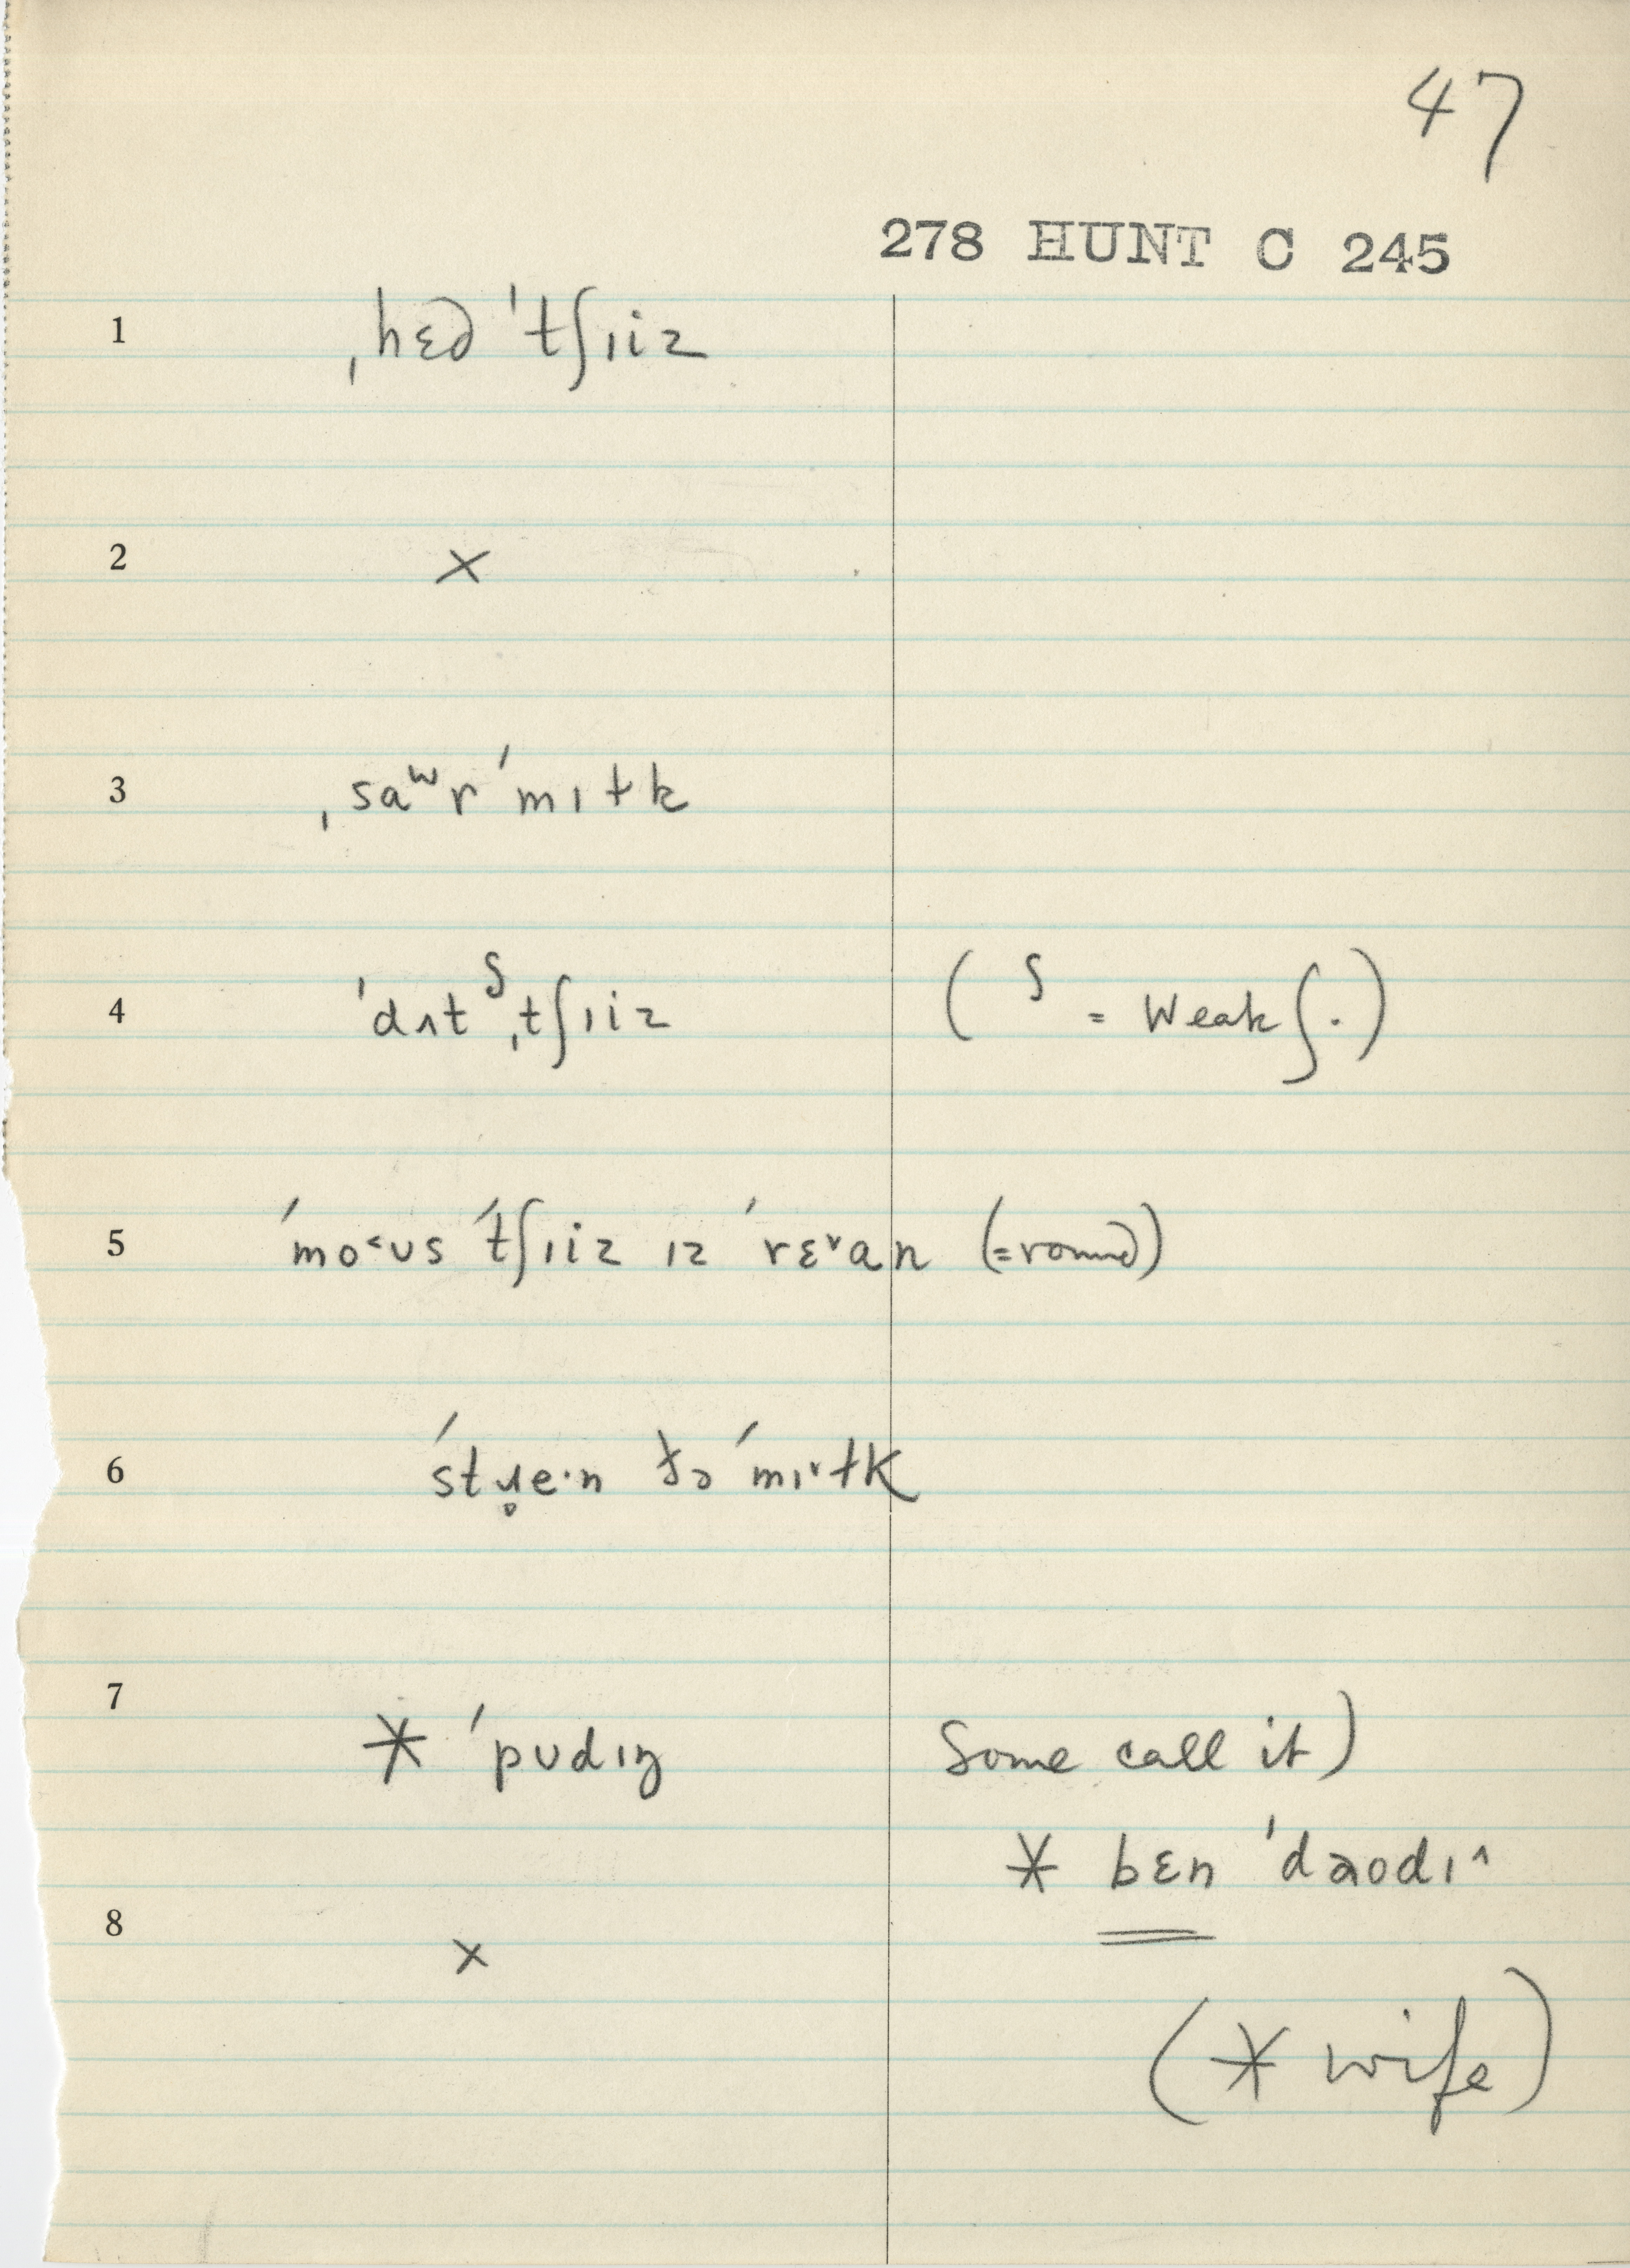 47
278 HUNT C 245
1 ˌhɛd ˈtʃɪiz
2 ×
3 ˌsaʷr ˈmɪɫk
4 ˈdʌtᶴˌtʃɪiz ( ᶴ = weak ʃ.)
5 ˈmo˂ʊs ˈtʃɪiz ɪz ˈrɛ˅an (=round)
6 ˈstɹ̥e·n ðə ˈmɪ˅ɫk
7 * ˈpʊdɪŋ Some call it)
* bɛn ˈdaodɪ^
8 ×
(* wife)